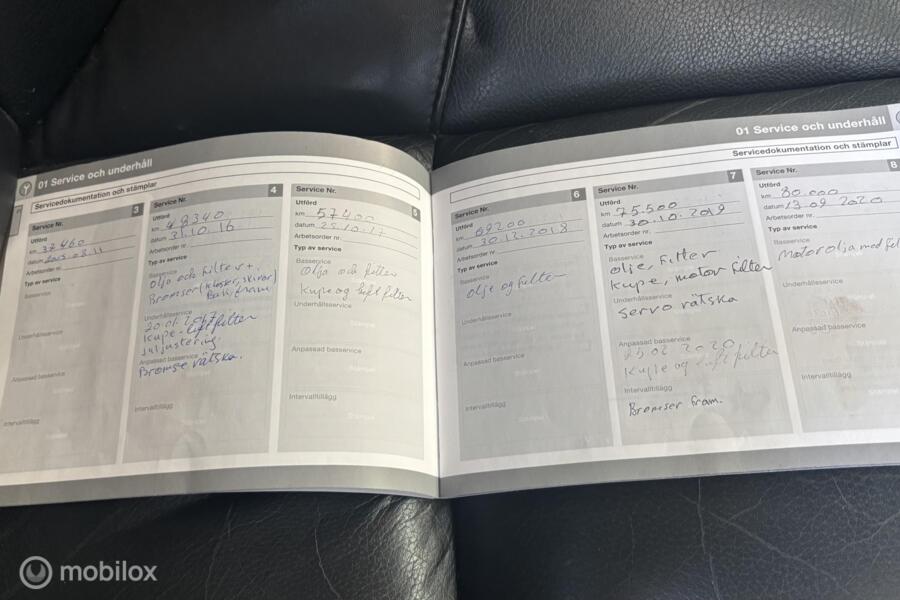 01 Service och underhåll
Servicedokumentation och stämplar
Service Nr. 3
Utförd
km 37460
datum 2015.08.11
Arbetsorder nr.
Typ av service
Basservice
Underhållsservice
Anpassad basservice
Intervalltillägg
Service Nr. 4
Utförd
km 48340
datum 21.10.16
Arbetsorder nr.
Typ av service
Basservice
Olja och filter +
Bromser (klosser, skivor)
Bak, fram
20.01.2017
Kupe-luftfilter
juljustering.
Anpassad basservice
Bromse rätska.
Intervalltillägg
Service Nr. 5
Utförd
km 57400
datum 25.10.17
Arbetsorder nr.
Typ av service
Basservice
Olja och filter
Kupe og luft filter
Underhållsservice
Anpassad basservice
Intervalltillägg
01 Service och underhåll
Servicedokumentation och stämplar
Service Nr. 6
Utförd
km 69200
datum 30.12.2018
Arbetsorder nr.
Typ av service
Basservice
olje og filter
Underhållsservice
Anpassad basservice
Intervalltillägg
Service Nr. 7
Utförd
km 75.500
datum 30.10.2019
Arbetsorder nr.
Typ av service
Basservice
olje, filter
kupe, motor filter
Underhållsservice
servo rätska
Anpassad basservice
25.02.2020
Kupe og luft filter
Intervalltillägg
Bromser fram.
Service Nr. 8
Utförd
km 80.000
datum 13.09 2020
Arbetsorder nr.
Typ av service
Basservice
Motorolja med fil
Underhållsservice
Anpassad basservice
Intervalltillägg
mobilox